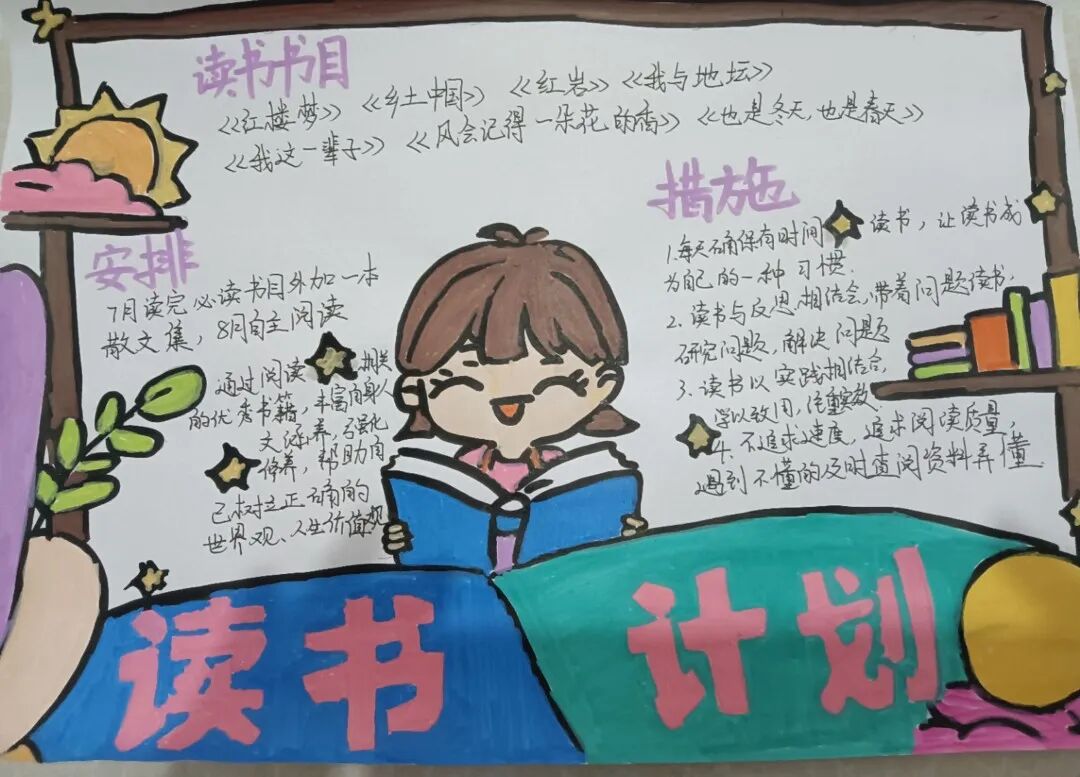 读书书目
《红楼梦》 《乡土中国》 《红岩》 《我与地坛》
《我这一辈子》 《风会记得一朵花的香》 《也是冬天,也是春天》
安排
7月读完必读书目外加一本
散文集，8月自主阅读
通过阅读 相关
的优秀书籍，丰富自身人
文涵养，强化
修养，帮助自
己树立正确的
世界观、人生价值观
措施
1.每天确保有时间 读书，让读书成
为自己的一种习惯.
2.读书与反思相结合,带着问题读书,
研究问题,解决问题
3.读书以实践相结合,
学以致用,注重实效
4.不追求速度,追求阅读质量,
遇到不懂的及时查阅资料弄懂
读书 计划